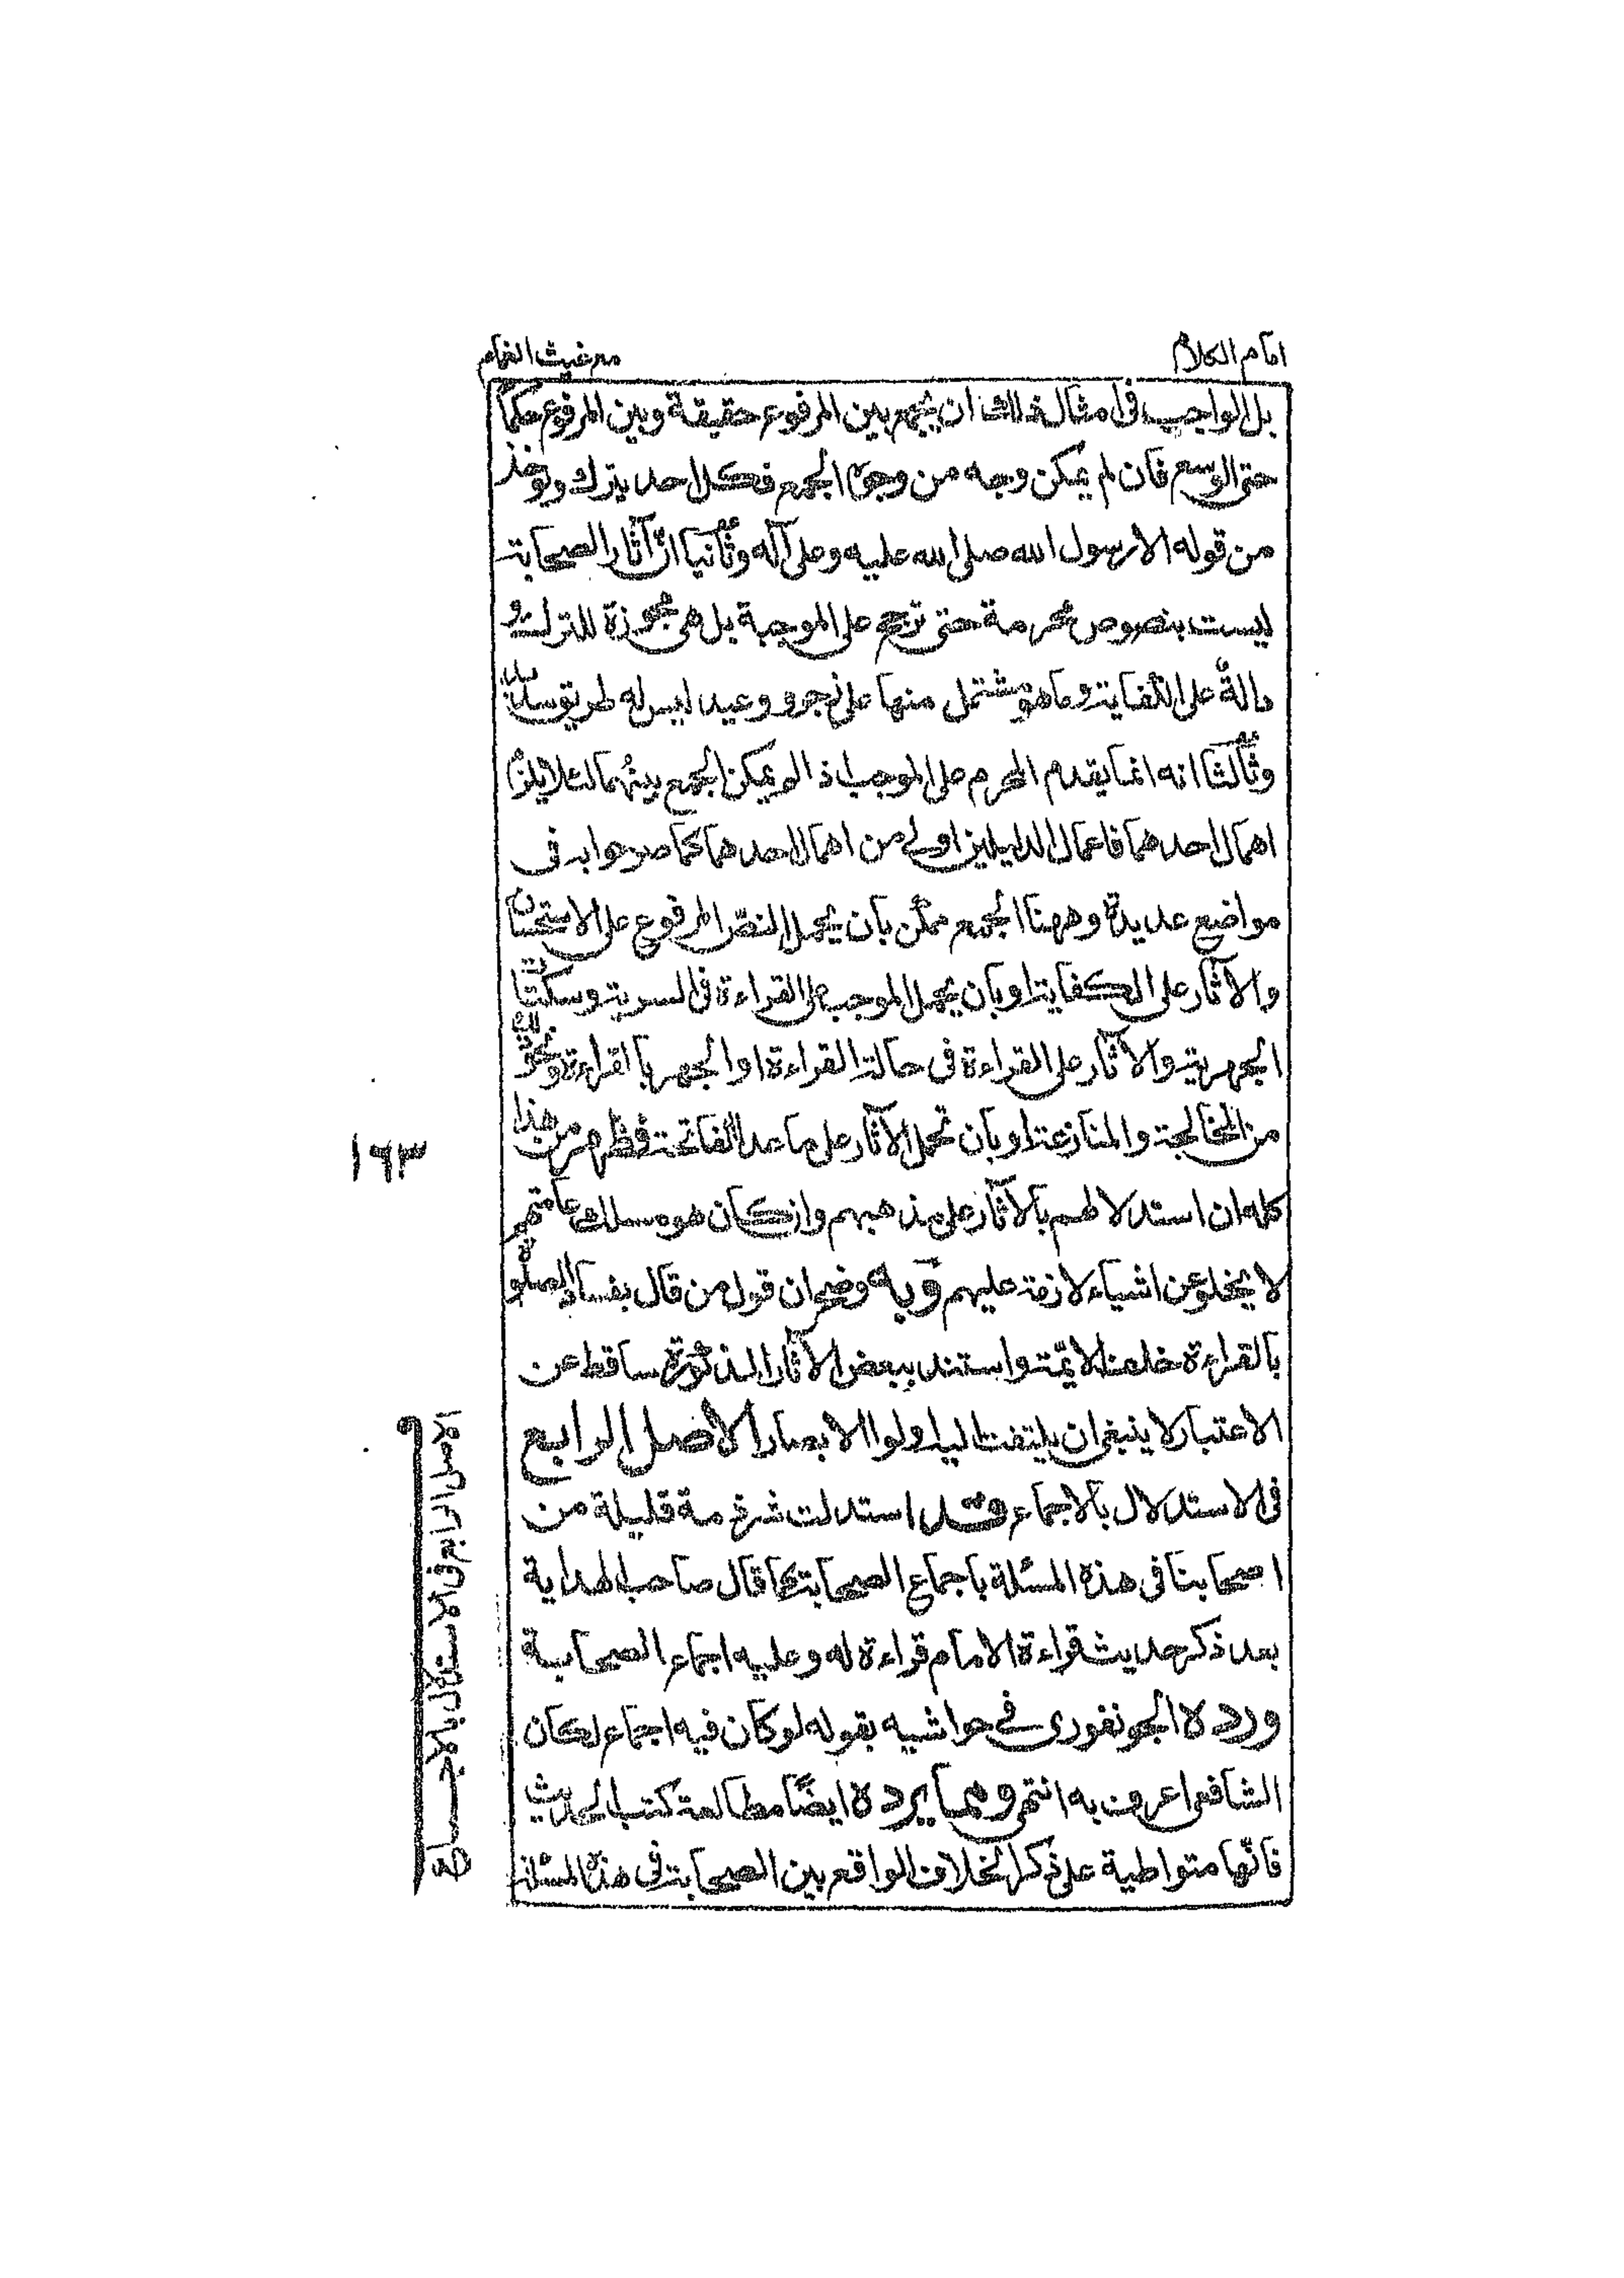 امام الكلام
مع غيث الغمام
بل الواجب فى امثال ذلك ان يجمع بين المرفوع حقيقة وبين المرفوع حكما
حتى الوسع فان لم يمكن وجه من وجوه الجمع فكل احد يترك ويوخذ
من قوله الا رسول الله صلى الله عليه وعلى آله وثانيا ان آثار الصحابة
ليست بنصوص محرمة حتى ترجح على الموجبة بل هى مجوزة للترك و
دالة على الكفاية وما هو مشتمل منها على زجر ووعيد ليس له طريق
وثالثا انه انما يقدم المحرم على الموجب اذا لم يمكن الجمع بينهما لئلا يلزم
اهمال احدهما فاعمال الدليلين اولى من اهمال احدهما كما صرحوا به فى
مواضع عديدة وههنا الجمع ممكن بان يحمل النص المرفوع على الاستحسان
والآثار على الكفاية او بان يحمل الموجب على القراءة فى السرية وسكتات
الجهرية والآثار على القراءة فى حالة القراءة او الجهر بالقراءة ونحو ذلك
من المخالجة والمنازعة او بان تحمل الآثار على ما عدا الفاتحة فظهر من هذا
كله ان استدلالهم بالآثار على مذهبهم وان كان هو مسلك عامتهم
لا يخلو عن اشياء لازمة عليهم وبه وضح ان قول من قال بفساد الصلوة
بالقراءة خلف الائمة واستند ببعض الآثار المذكورة ساقط عن
الاعتبار لا ينبغى ان يلتفت اليه اولوا الابصار الاصل الرابع
فى الاستدلال بالاجماع وقد استدلت شرذمة قليلة من
اصحابنا فى هذه المسئلة باجماع الصحابة كما قال صاحب الهداية
بعد ذكر حديث قراءة الامام قراءة له وعليه اجماع الصحابة
ورده الجونفورى فى حواشيه بقوله لو كان فيه اجماع لكان
الشافعى اعرف به انتهى ومما يرده ايضا مطالعة كتب الحديث
فانها متواطية على ذكر الخلاف الواقع بين الصحابة فى هذه المسئلة
١٦٣